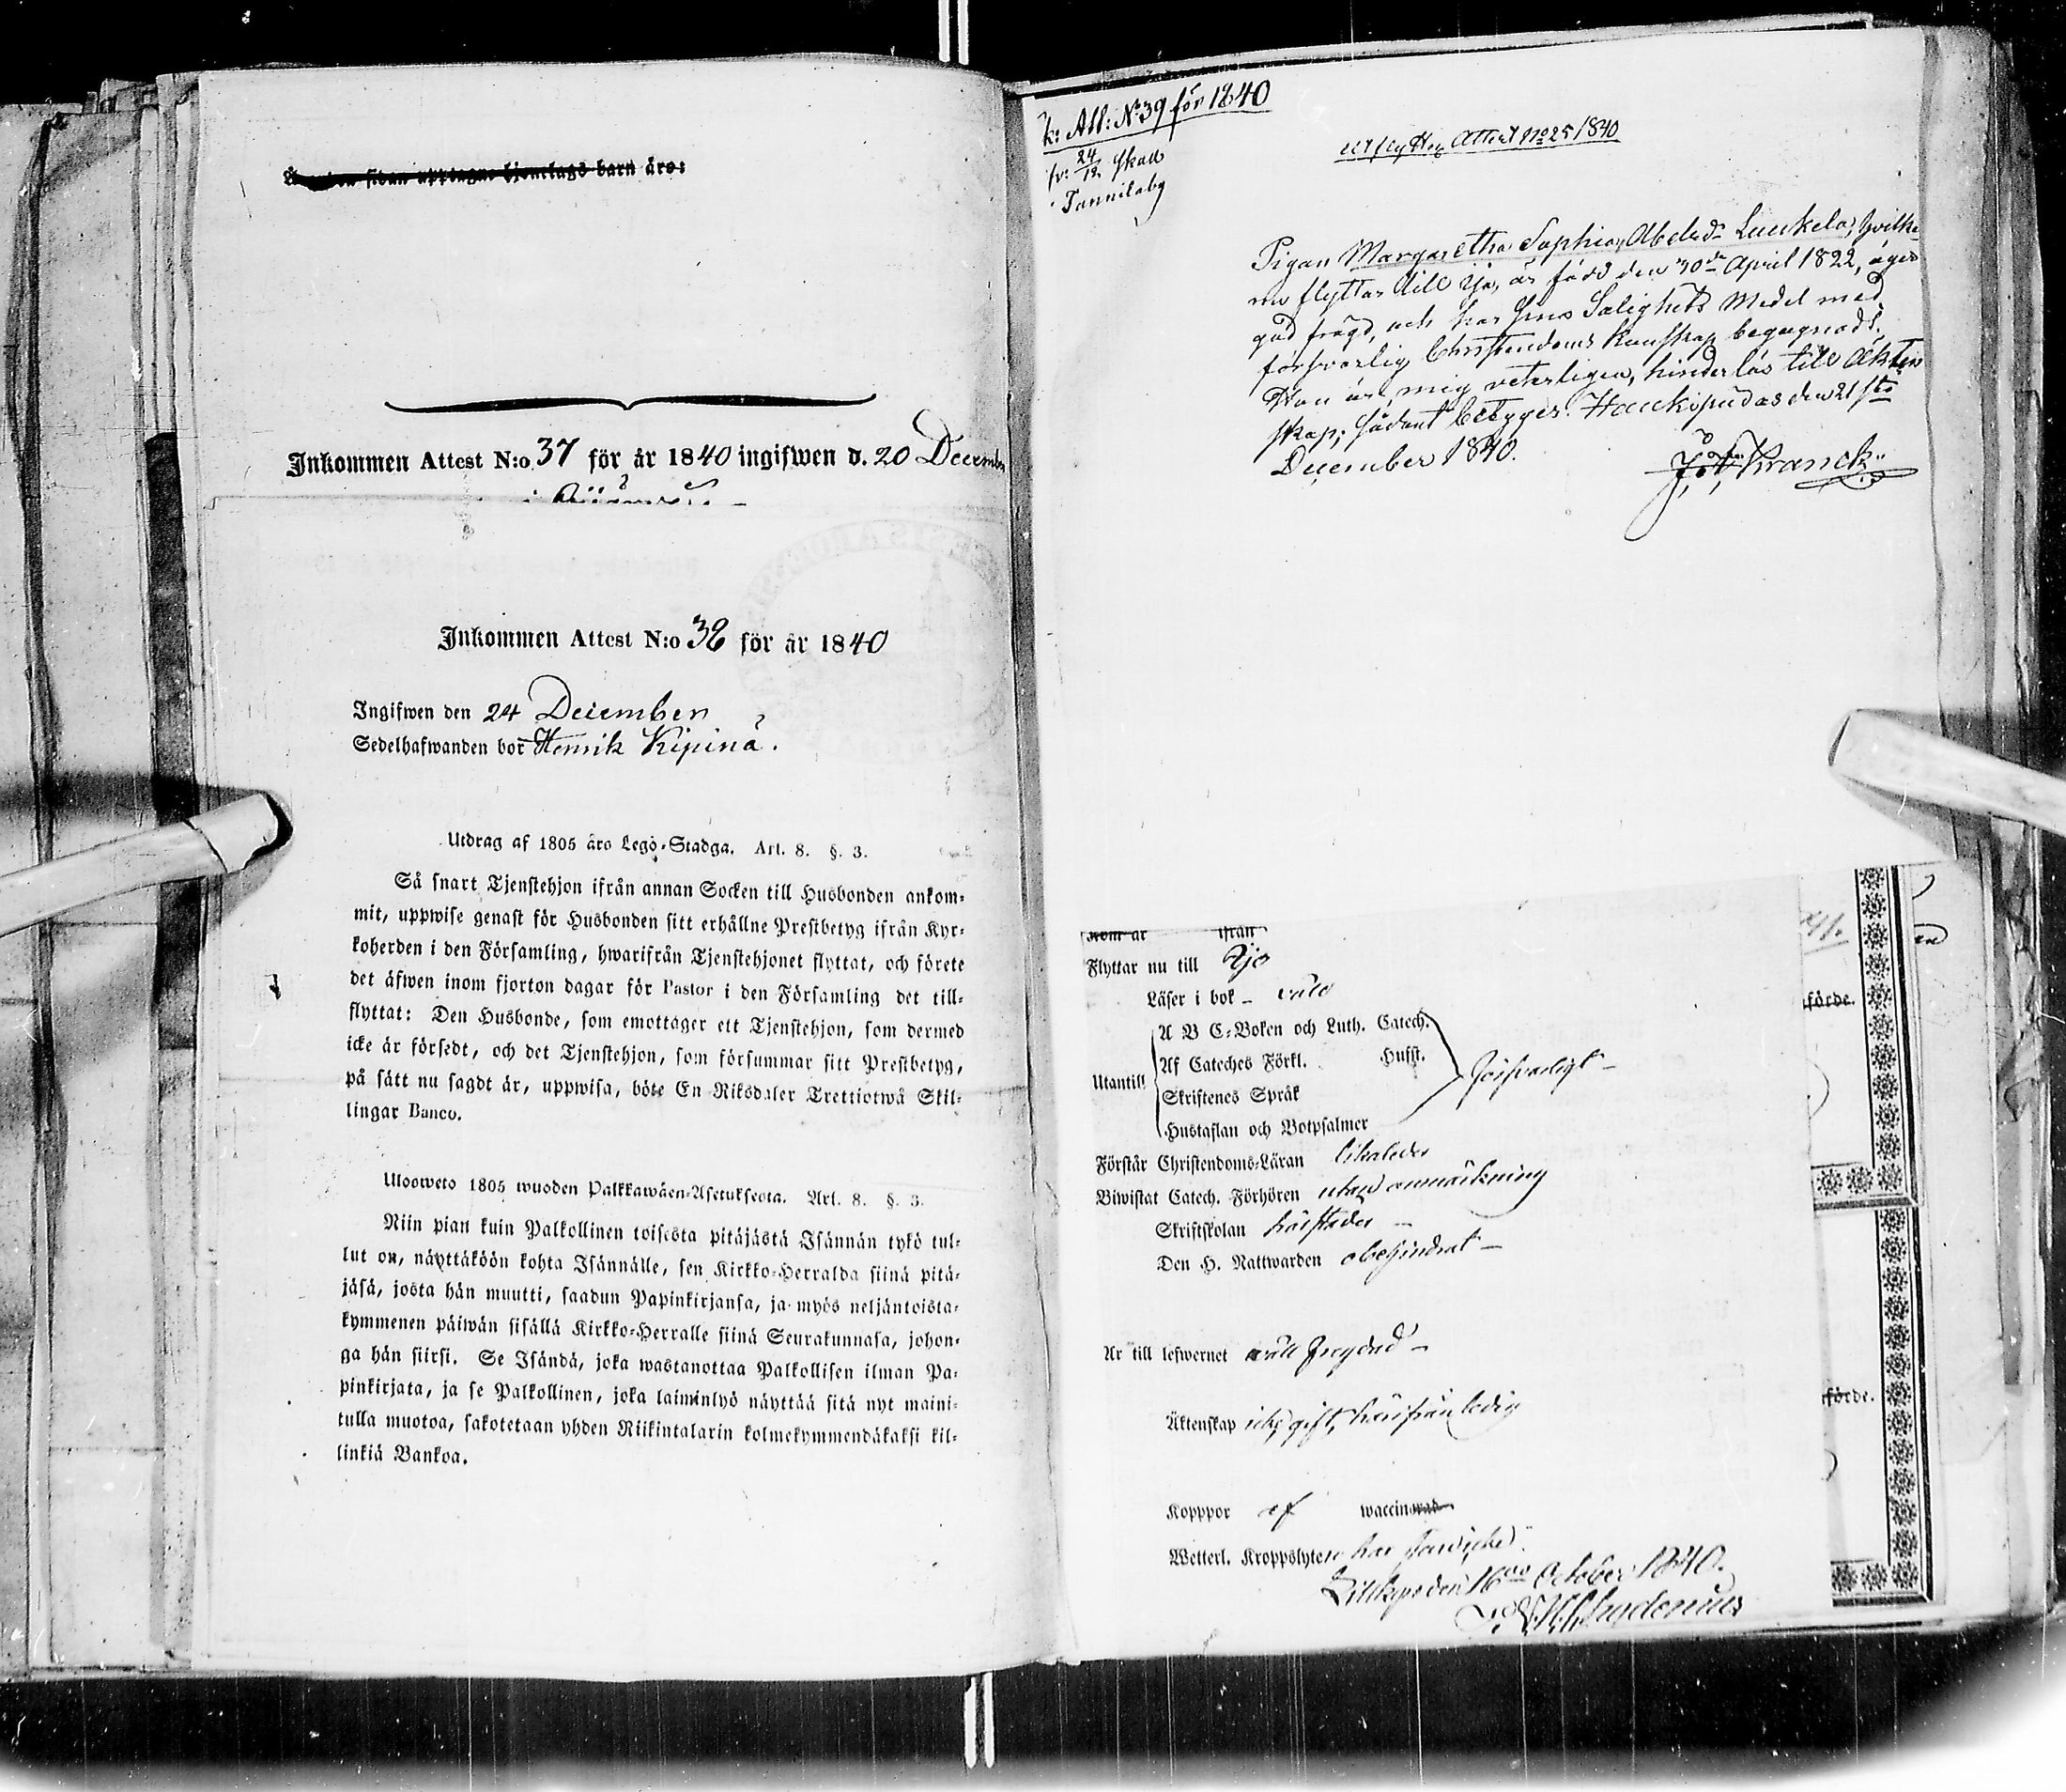 sedan uppdagne tjenelags barn äro:
Inkommen Attest N:o 37 för år 1840 ingifwen d. 20 Decemb
Inkommen Attest N:o 38 för år 1840
Ingifwen den 24 December
Sedelhafwanden bor Henrik Kipinä.
Utdrag af 1805 års Lego-Stadga. Art. 8. §. 3.
Så snart Tjenstehjon ifrån annan Socken till Husbonden ankom-
mit, uppwise genast för Husbonden sitt erhållne Prestbetyg ifrån Kyr-
koherden i den Församling, hwarifrån Tjenstehjonet flyttat, och förete
det äfwen inom fjorton dagar för Pastor i den Församling det till-
flyttat: Den Husbonde, som emottager ett Tjenstehjon, som dermed
icke är försedt, och det Tjenstehjon, som försummar sitt Prestbetyg,
på sätt nu sagdt är, uppwisa, böte En Riksdaler Trettiotwå Skil-
lingar Banco.
Uloosweto 1805 wuoden Palkkawäen-Asetuksesta. Art. 8. §. 3.
Niin pian kuin Palkollinen toisesta pitäjästä Isännän tykö tul-
lut on, näyttäköön kohta Isännälle, sen Kirkko-Herralda siinä pitä-
jäsä, josta hän muutti, saadun Papinkirjansa, ja myös neljäntoista-
kymmenen päiwän sisällä Kirkko-Herralle siinä Seurakunnasa, johon-
ga hän siirsi. Se Isändä, joka wastanottaa Palkollisen ilman Pa-
pinkirjata, ja se Palkollinen, joka laiminlyö näyttää sitä nyt maini-
tulla muotoa, sakotetaan yhden Riikintalarin kolmekymmendäkaksi kil-
linkiä Bankoa.
k: Att: No 39 för 1840
24/12 Skau
Tannilaby
Utflyttn Attest No 25 1840
Pigan Margaretha Sophia Abelsdr Luukela, hvilken
nu flyttar till Ijo, är född den 30de April 1822, äger
god frägd, och har sina Salighets Medel med
försvarlig Christendoms kunskap begagnadt.
Hon är, mig veterligen, hinderlös till Äkten
skap; sådant betygar. Haukipudas den 21sta
December 1840.
Joh Kranck
Kom år ifrån
Flyttar nu till Ijo
Läser i bok – väl
Utantill
A B C-Boken och Luth. Catech.
Af Cateches Förkl. Husst.
Skriftenes Språk
Hustaflan och Botpsalmer
försvarligt –
Förstår Christendoms-Läran likaledes
Biwistat Catech. Förhören utan anmärkning
Skriftskolan härstädes –
Den H. Nattwarden obehindrat –
Är till lefwernet väll frejdad –
Äktenskap icke gift, härifrån ledig
Kopppor af waccinerad
Wetterl. Kroppslyten har han icke.
October 1840.
förde.
förde.